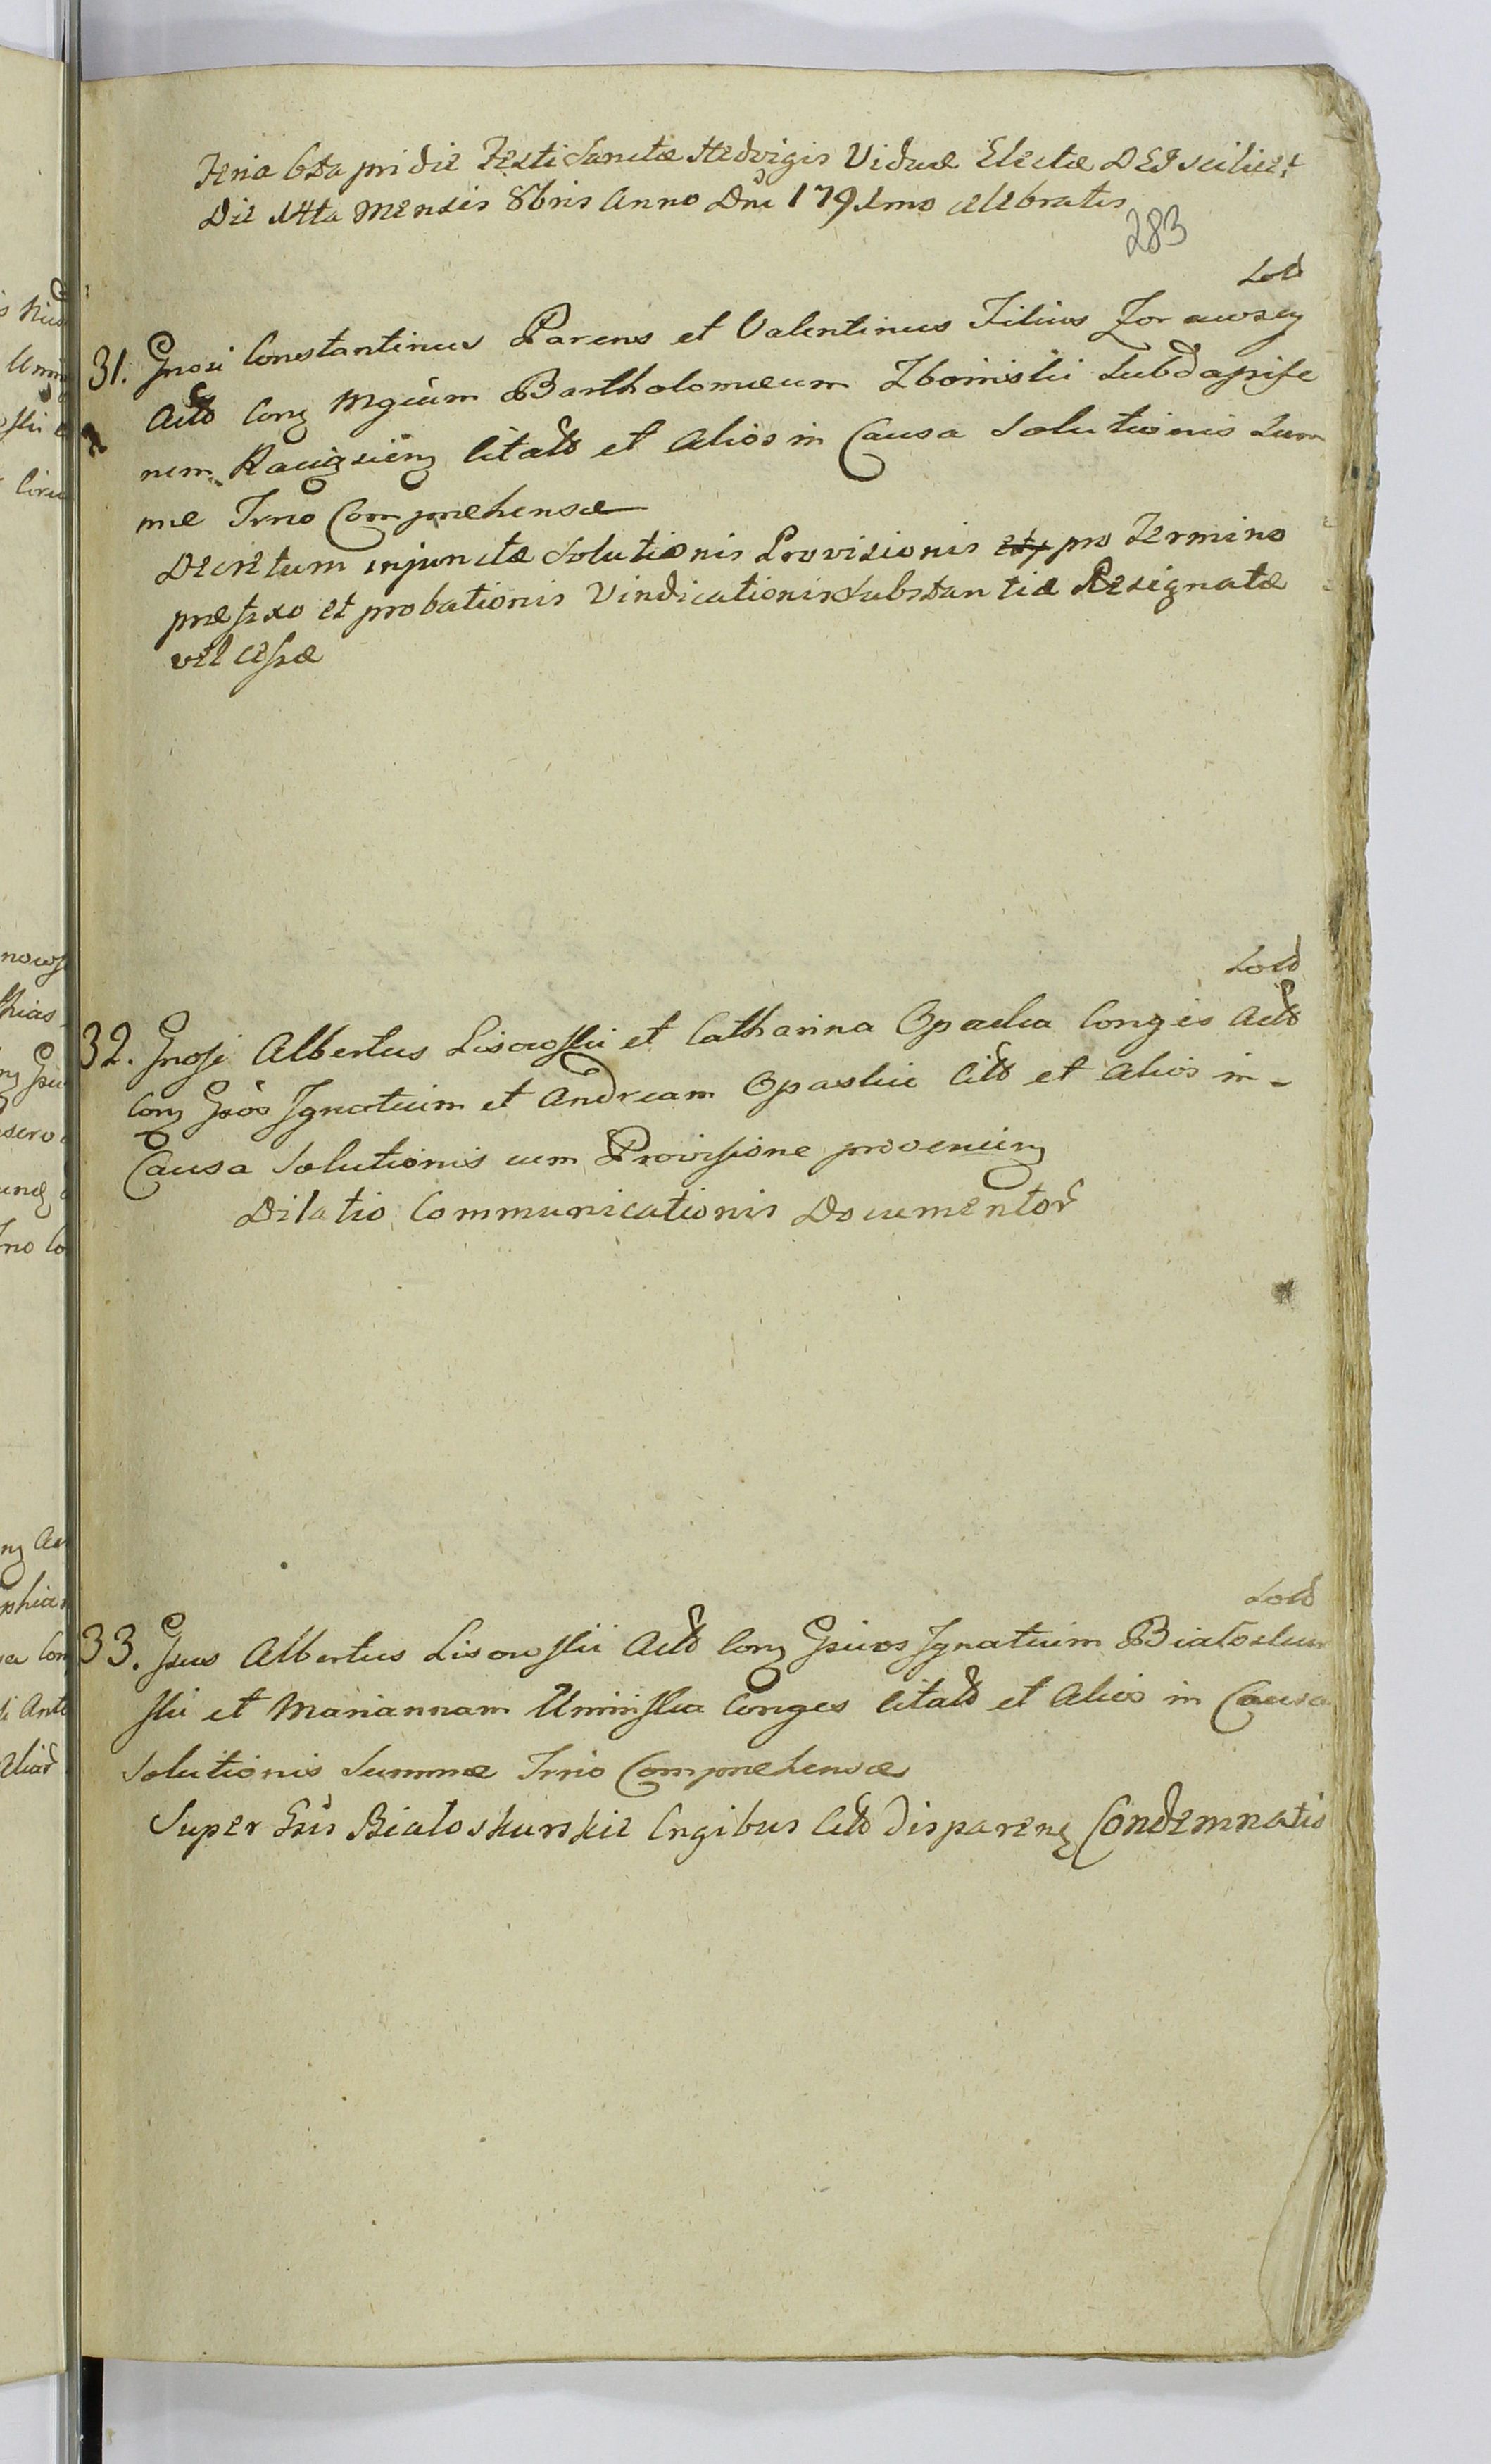 Feria 6ta pridie Festi Sanctæ Hedvigis Viduæ Electæ DEI scilicet
Die 14ta Mensis 8bris Anno Dni 1791mo celebratis
283
Sold
31. Gnosi Constantinus Parens et Valentinus Filius Zorawscy
Actt Conq Mgcum Bartholomæum Zboinski Subdapife
nem Raciązienq Citatt et Alios in Causa Solutionis Sum
mæ Trno Comprehensæ
Decretum injunctæ Solutionis Provisionis pro Termino
præfixo et probationis Vindicationis Substantiæ Resignatæ
vel cessæ
Sold
32. Gnosi Albertus Lisowski et Catharina Opacka Conges Actt
Conq Gsos Ignatium et Andream Opackie Citt et Alios in
Causa Solutionis cum Provisione provenienq
Dilatio Communicationis Documentor
Sold
33. Gsus Albertus Lisowskii Actt Conq Gsuos Ignatium Białoskur
ski et Mariannam Uminska Conges Citatt et Alios in Causa
Solutionis Summæ Trno Comprehensæ
Super Gsis Białoskurskie Cngibus Citt Disparenq Condemnatio